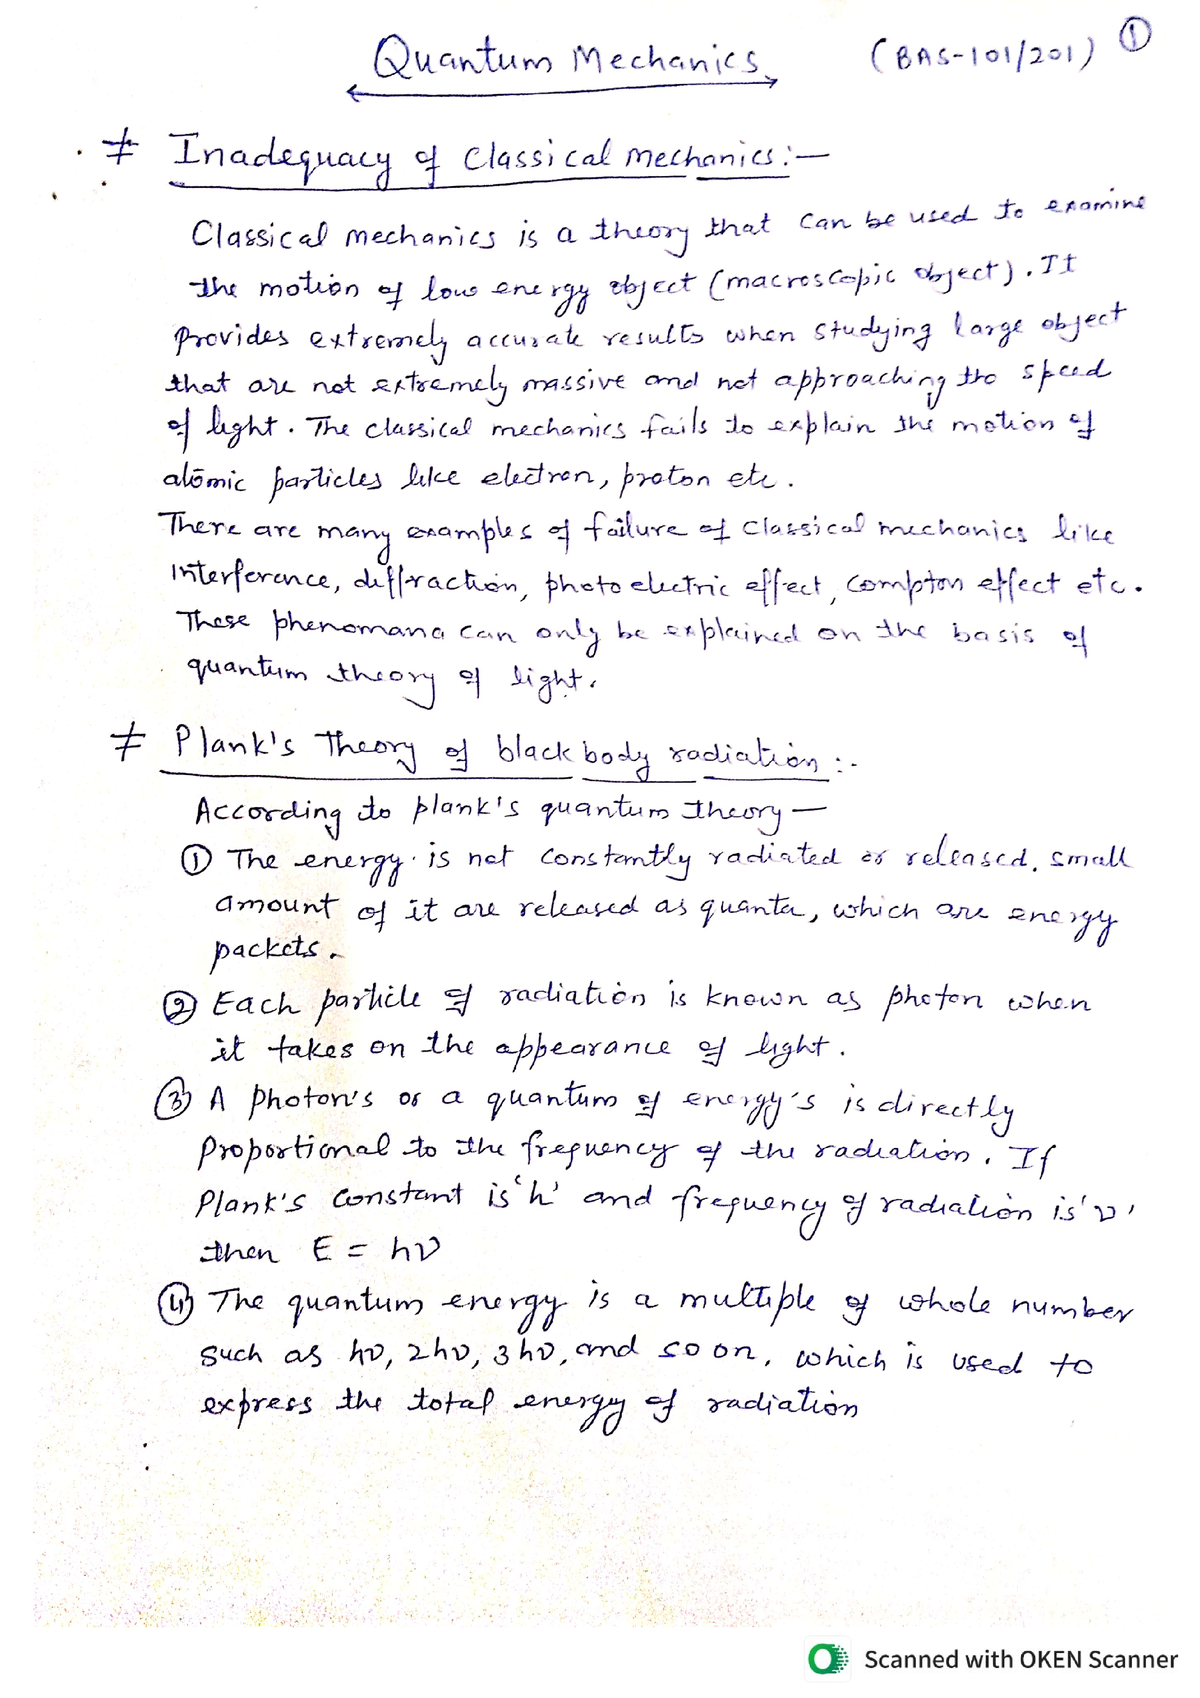 Quantum Mechanics (BAS-101/201) ①
≠ Inadequacy of Classical mechanics:—
Classical mechanics is a theory that can be used to examine
the motion of low energy object (macroscopic object). It
provides extremely accurate results when studying large object
that are not extremely massive and not approaching the speed
of light. The classical mechanics fails to explain the motion of
atomic particles like electron, proton etc.
There are many examples of failure of classical mechanics like
Interference, diffraction, photoelectric effect, compton effect etc.
These phenomana can only be explained on the basis of
quantum theory of light.
≠ Plank's Theory of blackbody radiation :-
According to plank's quantum theory —
① The energy is not constantly radiated or released. small
amount of it are released as quanta, which are energy
packets.
② Each particle of radiation is known as photon when
it takes on the appearance of light.
③ A photon's or a quantum of energy's is directly
proportional to the frequency of the radiation. If
Plank's constant is 'h' and frequency of radiation is 'ν'
then E = hν
④ The quantum energy is a multiple of whole number
such as hν, 2hν, 3hν, and so on, which is used to
express the total energy of radiation
Scanned with OKEN Scanner